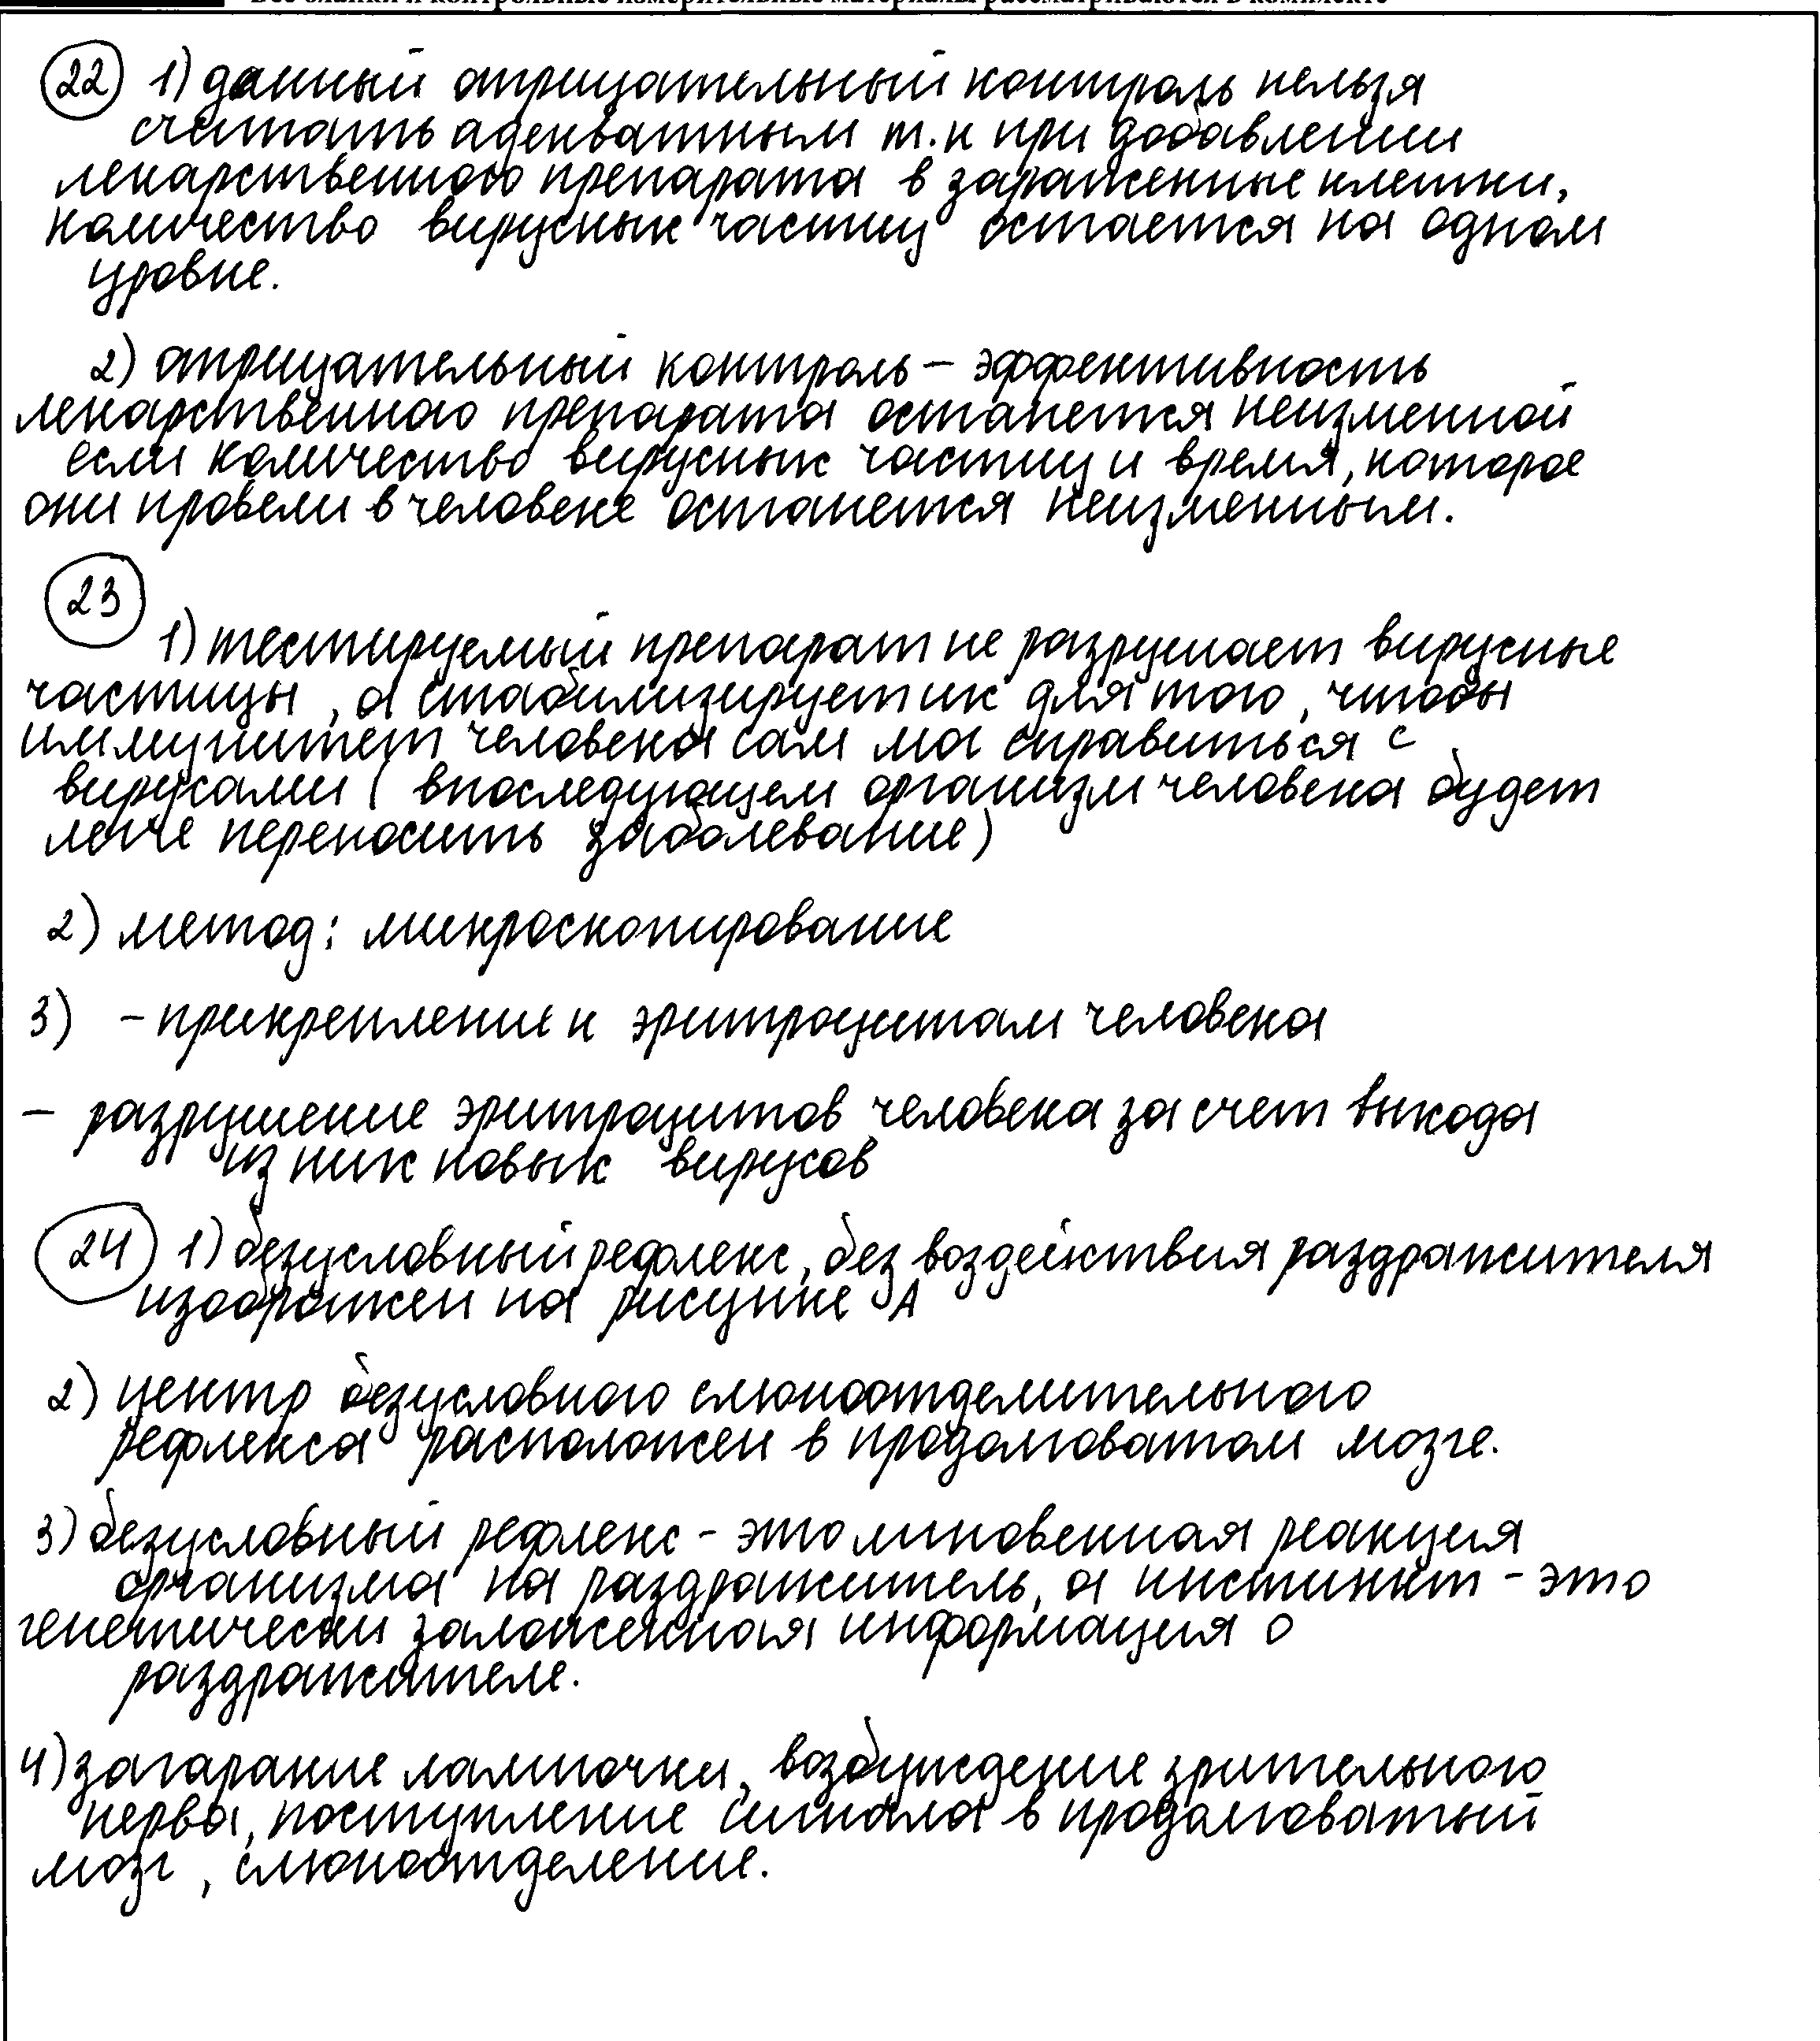 Все бланки и контрольные измерительные материалы рассматриваются в комплекте
22 1) данный отрицательный контроль нельзя
считать адекватным т.к при добавлении
лекарственного препарата в зараженные клетки,
количество вирусных частиц остается на одном
уровне.
2) отрицательный контроль – эффективность
лекарственного препарата останется неизменной
если количество вирусных частиц и время, которое
они провели в человеке останется неизменным.
23
1) тестируемый препарат не разрушает вирусные
частицы, а стабилизирует их для того, чтобы
иммунитет человека сам мог справиться с
вирусами (впоследующем организм человека будет
легче переносить заболевание)
2) метод: микроскопирование
3) – прикрепление к эритроцитам человека
– разрушение эритроцитов человека за счет выхода
из них новых вирусов
24 1) безусловный рефлекс, без воздействия раздражителя
изображен на рисунке А
2) центр безусловного слюноотделительного
рефлекса расположен в продолговатом мозге.
3) безусловный рефлекс - это мгновенная реакция
организма на раздражитель, а инстинкт - это
генетически заложенная информация о
раздражителе.
4) загарание лампочки, возбуждение зрительного
нерва, поступление сигнала в продолговатый
мозг, слюноотделение.